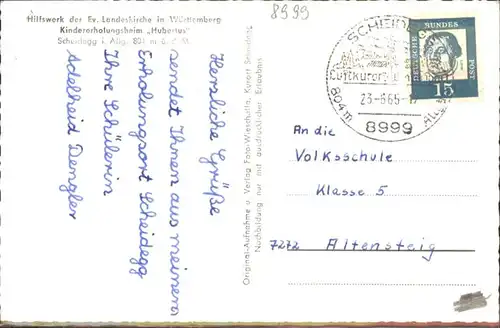 8999
Hilfswerk der Ev. Landeskirche in Württemberg
Kindererholungsheim „Hubertus"
Scheidegg i. Allg. 801 m ü. d. M.
Herzliche Grüße
sendet Ihnen aus meinem
Erholungsort Scheidegg
Ihre Schülerin
Adelheid Dengler
Original-Aufnahme u. Verlag Foto-Wiesthulla, Kurort Scheidegg
Nachbildung nur mit ausdrücklicher Erlaubnis
SCHEIDEGG
Luftkurort
804m
23-6.65-17
8999
DEUTSCHE
BUNDES
POST
15
An die
Volksschule
Klasse 5
7272 Altensteig